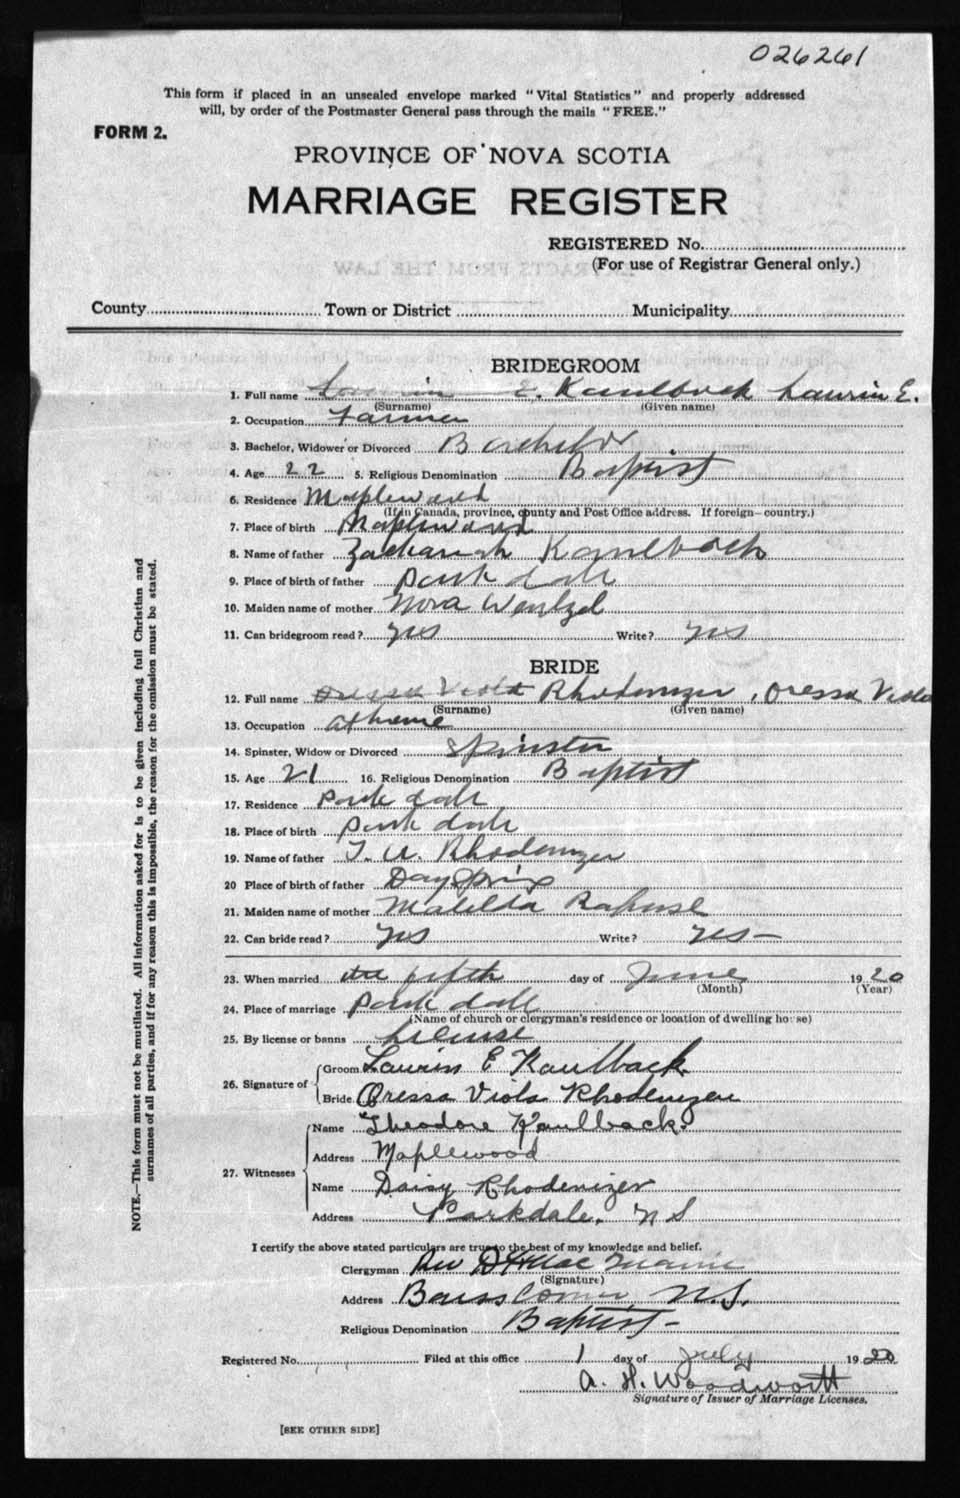 026261
This form if placed in an unsealed envelope marked "Vital Statistics" and properly addressed
will, by order of the Postmaster General pass through the mails "FREE."
FORM 2.
PROVINCE OF NOVA SCOTIA
MARRIAGE REGISTER
REGISTERED No.
(For use of Registrar General only.)
County Town or District Municipality
BRIDEGROOM
1. Full name Laurin E. Kaulback Laurin E.
(Surname) (Given name)
2. Occupation Farmer
3. Bachelor, Widower or Divorced Bachelor
4. Age 22 5. Religious Denomination Baptist
6. Residence Maplewood
(If in Canada, province, county and Post Office address. If foreign—country.)
7. Place of birth Maplewood
8. Name of father Zachariah Kaulback
9. Place of birth of father Parkdale
10. Maiden name of mother Nora Wentzel
11. Can bridegroom read? yes Write? yes
BRIDE
12. Full name Oressa Viola Rhodenizer, Oressa Viola
(Surname) (Given name)
13. Occupation at home
14. Spinster, Widow or Divorced Spinster
15. Age 21 16. Religious Denomination Baptist
17. Residence Parkdale
18. Place of birth Parkdale
19. Name of father Rhodenizer
20 Place of birth of father DaySpring
21. Maiden name of mother Matilda
22. Can bride read? yes Write? yes—
23. When married the fifth day of June 1920
(Month) (Year)
24. Place of marriage Parkdale
(Name of church or clergyman's residence or location of dwelling house)
25. By license or banns License
26. Signature of Groom Laurin E Kaulback
Bride Oressa Viola Rhodenizer
27. Witnesses Name Theodore Kaulback.
Address Maplewood
Name Daisy Rhodenizer
Address Parkdale, N S
I certify the above stated particulars are true to the best of my knowledge and belief.
Clergyman Rev
(Signature)
Address Corner, N.S.
Religious Denomination Baptist—
Registered No. Filed at this office 1 day of July 1920
A. H. Woodworth
Signature of Issuer of Marriage Licenses.
[SEE OTHER SIDE]
NOTE.—This form must not be mutilated. All information asked for is to be given including full Christian and
surnames of all parties, and if for any reason this is impossible, the reason for the omission must be stated.